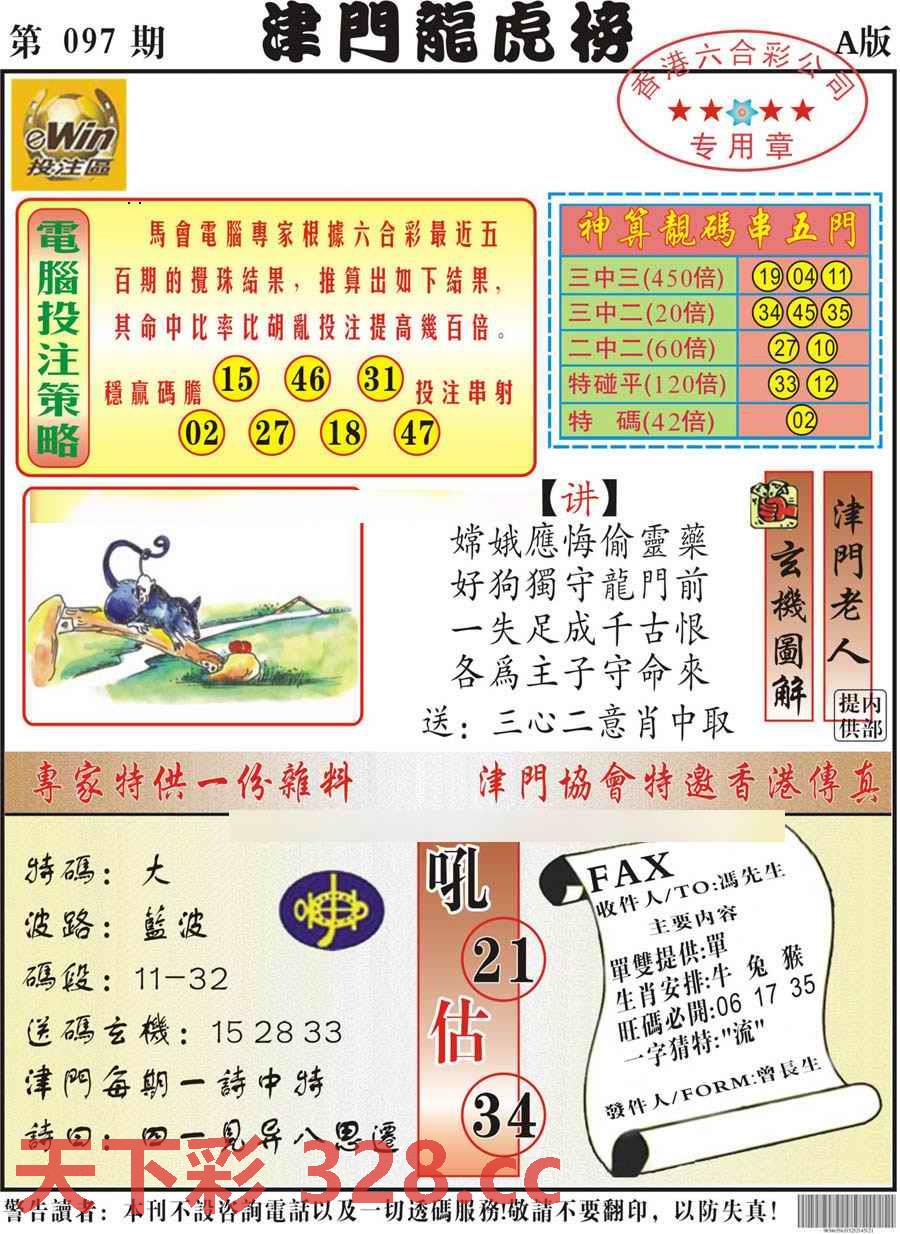 第 097 期
津門龍虎榜
A版
香港六合彩公司
专用章
eWin
投注區
電腦投注策略
馬會電腦專家根據六合彩最近五
百期的攪珠結果，推算出如下結果，
其命中比率比胡亂投注提高幾百倍。
穩贏碼膽 15 46 31 投注串射
02 27 18 47
神算靚碼串五門
三中三(450倍) 19 04 11
三中二(20倍) 34 45 35
二中二(60倍) 27 10
特碰平(120倍) 33 12
特 碼(42倍) 02
【讲】
嫦娥應悔偷靈藥
好狗獨守龍門前
一失足成千古恨
各爲主子守命來
送：三心二意肖中取
玄機圖解
津門老人
内部提供
專家特供一份雜料
津門協會特邀香港傳真
特碼：大
波路：藍波
碼段：11-32
送碼玄機：15 28 33
津門每期一詩中特
詩曰：四一見异八思遷
吼
21
估
34
FAX
收件人/TO:馮先生
主要内容
單雙提供:單
生肖安排:牛 兔 猴
旺碼必開:06 17 35
一字猜特:"流"
發件人/FORM:曾長生
天下彩 328.cc
警告讀者：本刊不設咨詢電話以及一切透碼服務!敬請不要翻印，以防失真！